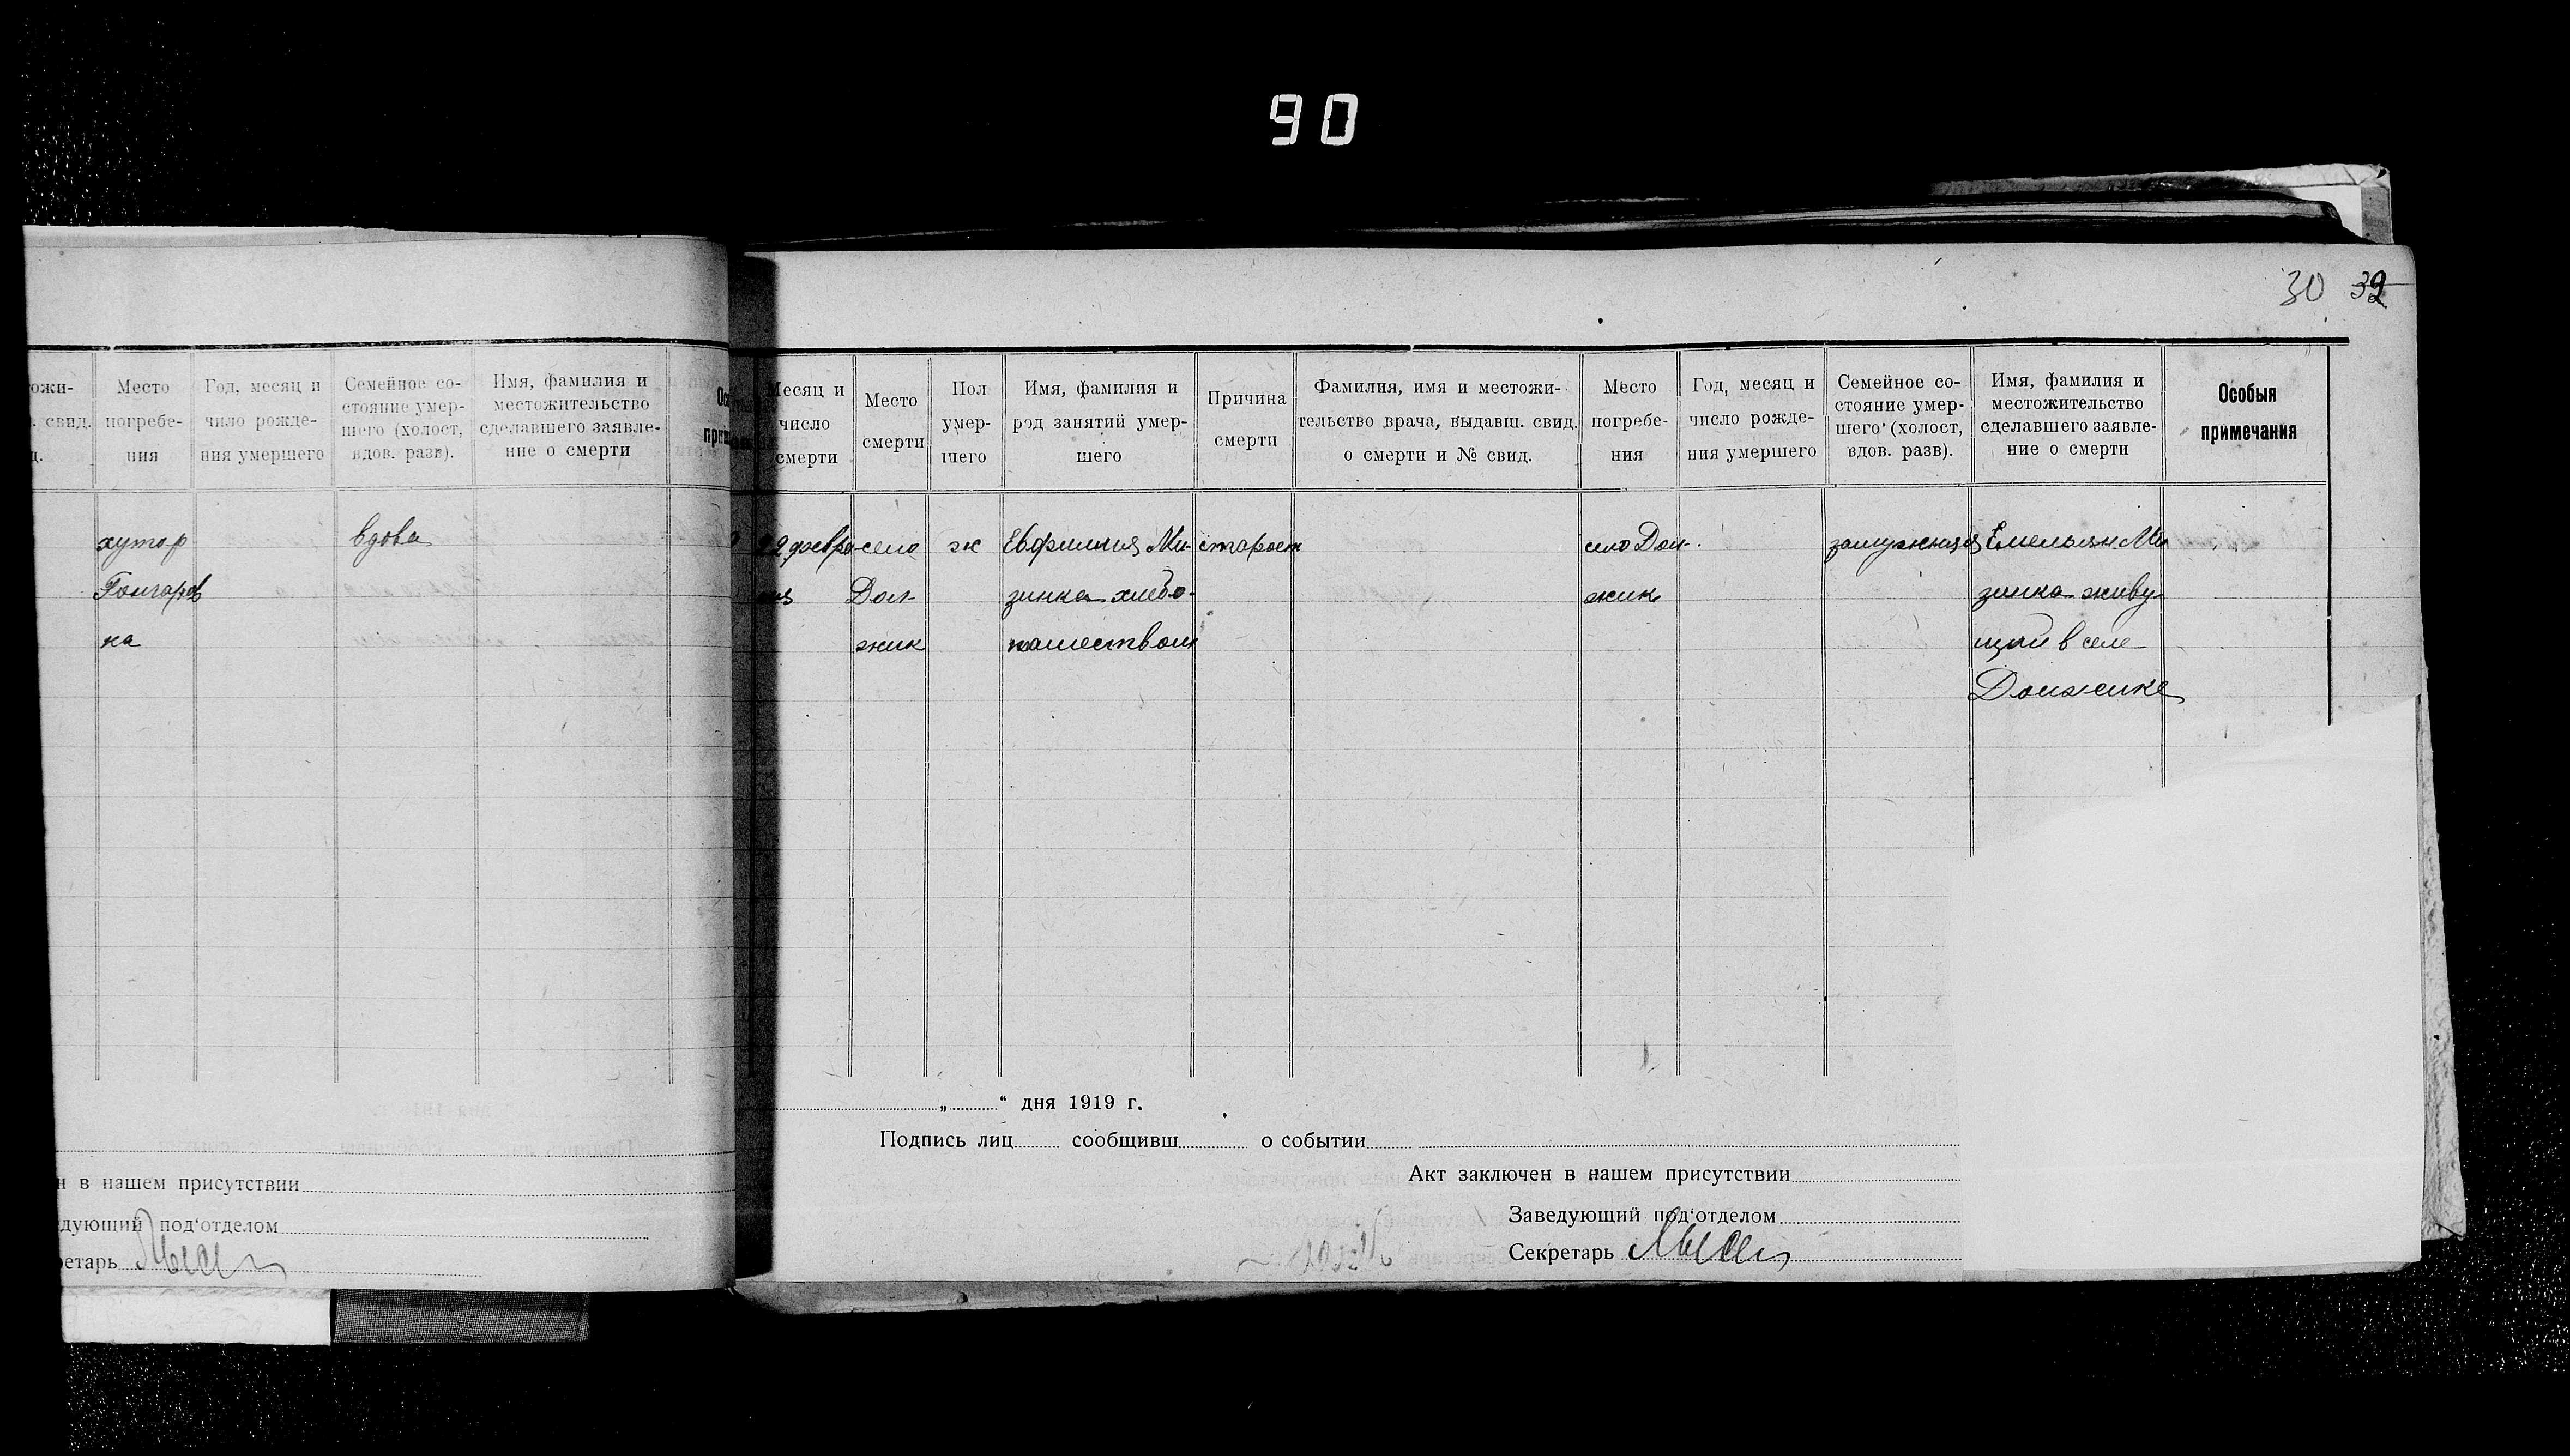 90
30 32
ожи-
. свид.
д.
Место
погребе-
ния
Год, месяц и
чило рожде-
ния умершего
Семейное со-
стояние умер-
шего (холост,
вдов. разв).
Имя, фамилия и
местожительство
сделавшего заявле-
ние о смерти
хутор
Гончаров
ка
вдова
н в нашем присутствии
едующий под'отделом
ретарь
Месяц и
число
смерти
Место
смерти
Пол
умер-
шего
Имя, фамилия и
род занятий умер-
шего
Причина
смерти
Фамилия, имя и местожи-
тельство врача, выдавш. свид.
о смерти и № свид.
Место
погребе-
ния
Год, месяц и
число рожде-
ния умершего
Семейное со-
стояние умер-
шего (холост,
вдов. разв).
Имя, фамилия и
местожительство
сделавшего заявле-
ние о смерти
Особыя
примечания
22 февра
ля
село
Дол
жик
ж
Евфимия Ми-
зинка хлебо-
пашеством
старост
село Дол-
жик
замужняя
Емельян Ми
зинка живу-
щий в селе
Должике
„ “ дня 1919 г.
Подпись лиц сообщивш о событии
Акт заключен в нашем присутствии
Заведующий под'отделом
Секретарь